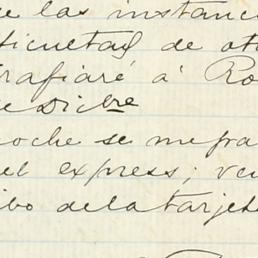 e las instanc
ficultad de ot
rafiaré á Ro
e Dicbre
oche se me fra
el express; ve
ibo de la tarjet